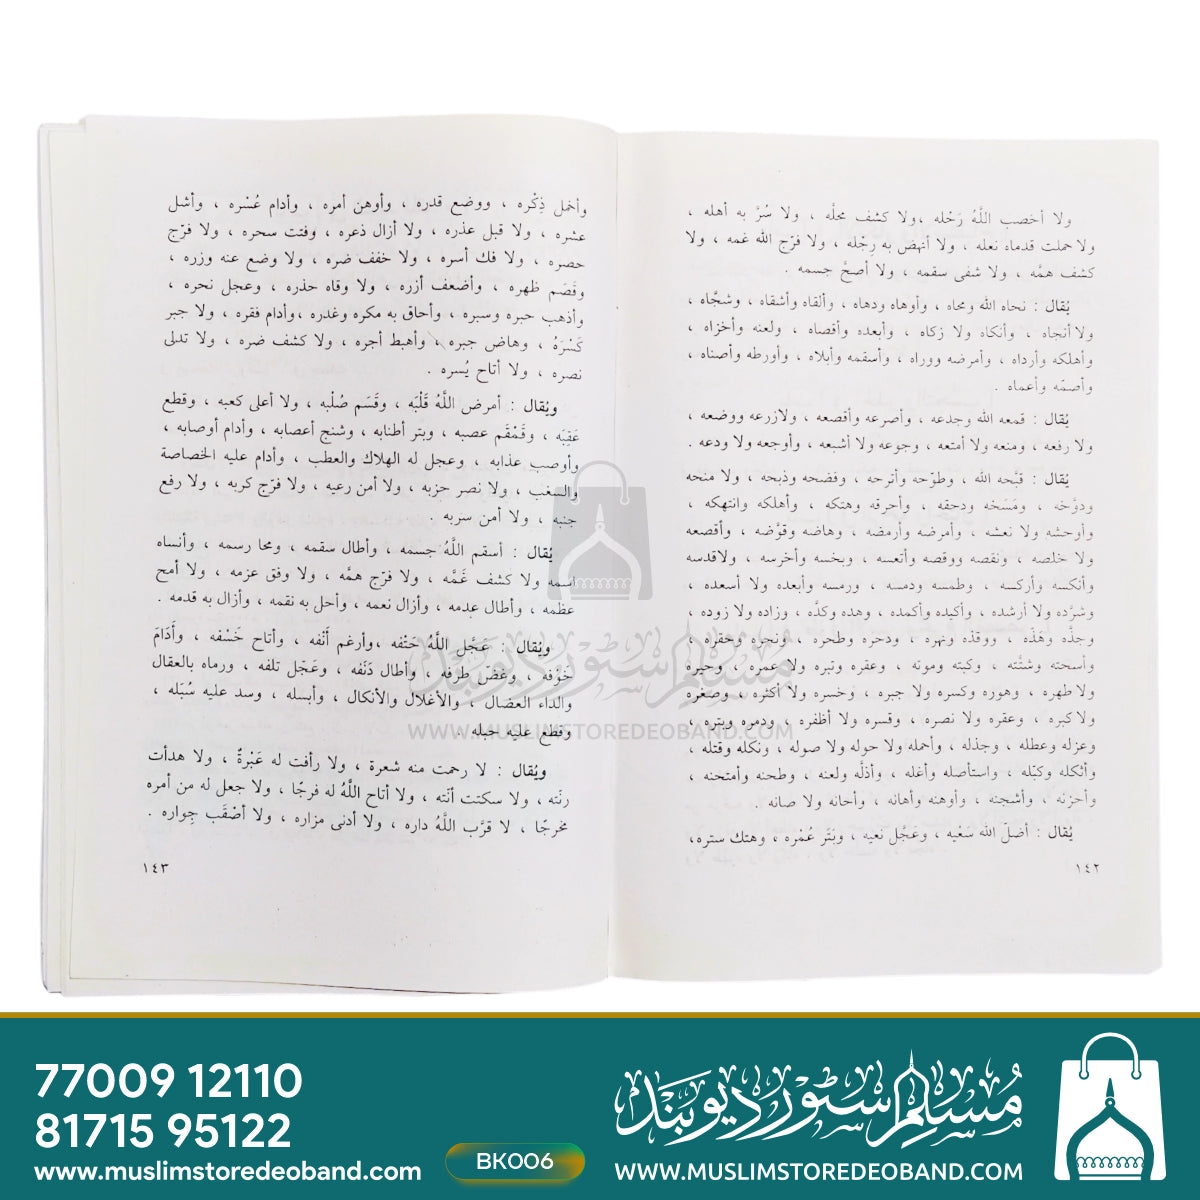 ولا أخصب اللَّهُ رَحْله ،ولا كشف محلَّه ، ولا سُرَّ به أهله ،
ولا حملت قدماه نعله ، ولا أنهض به رِجْله ، ولا فرّج الله غمه ، ولا
كشف همَّه ، ولا شفى سقمه ، ولا أصحَّ جسمه .
يُقال : نحاه الله ومحاه ، وأوهاه ودهاه ، وألقاه وأشقاه ، وشجَّاه ،
ولا أنجاه ، وأنكاه ولا زكاه ، وأبعده وأقصاه ، ولعنه وأخزاه ،
وأهلكه وأرداه ، وأمرضه ووراه ، وأسقمه وأبلاه ، وأورطه وأصناه ،
وأصمّه وأعماه .
يُقال : قمعه الله وجدعه ، وأصرعه وأقصعه ، ولازرعه ووضعه ،
ولا رفعه ، ومنعه ولا أمتعه ، وجوعه ولا أشبعه ، وأوجعه ولا ودعه .
يُقال : قبَّحه الله ، وطوّحه وأترحه ، وفضحه وذبحه ، ولا منحه
ودوَّخه ، ومَسَخه ودحقه ، وأحرقه وهتكه ، وأهلكه وانتهكه ،
وأوحشه ولا نعشه ، وأمرضه وأرمضه ، وهاضه وقوَّضه ، وأقصعه
ولا خلصه ، ونقصه ووقصه وأتعسه ، وبخسه وأخرسه ، ولاقدسه
وأنكسه وأركسه ، وطمسه ودمسه ، ورمسه وأبعده ولا أسعده ،
وشرَّده ولا أرشده ، وأكيده وأكمده ، وهده وكدَّه ، وزاده ولا زوده ،
وجذَّه وهَذَّه ، ووقذه ونهره ، ودحره وطحره ، ونجره وحقره ،
وأسحته وشتَّته ، وكبته وموته ، وعقره وتبره ولا عمره ، وحيره
ولا طهره ، وهوره وكسره ولا جبره ، وخسره ولا أكثره ، وصغره
ولاكبره ، وعقره ولا نصره ، وقسره ولا أظفره ، ودمره وبتره ،
وعزله وعطله ، وجذله ، وأخمله ولا حوله ولا صوله ، ونكله وقتله ،
وأثكله وكبّله ، واستأصله وأغله ، وأذلَّه ولعنه ، وطحنه وأمتحنه ،
وأحزنه ، وأشجنه ، وأوهنه وأهانه ، وأحانه ولا صانه .
يُقال : أضلّ الله سَعْيه ، وعَجَّل نعيه ، وبَتَر عُمْره ، وهتك ستره،
١٤٢
وأخمل ذِكْره ، ووضع قدره ، وأوهن أمره ، وأدام عُسْره ، وأشل
عشره ، ولا قبل عذره ، ولا أزال ذعره ، وفتت سحره ، ولا فرّج
حصره ، ولا فك أسره ، ولا خفف ضره ، ولا وضع عنه وزره ،
وقَصَم ظهره ، وأضعف أزره ، ولا وقاه حذره ، وعجل نحره ،
وأذهب حبره وسبره ، وأحاق به مكره وغدره ،وأدام فقره ، ولا جبر
كَسْرَهُ ، وهاض جبره ، وأهبط أجره ، ولا كشف ضره ، ولا تدلى
نصره ، ولا أتاح يُسره .
ويُقال : أمرض اللَّهُ قَلْبَه ، وقَسَم صُلْبه ، ولا أعلى كعبه ، وقطع
عَقِبَه ، وقَمْقَم عصبه ، وبتر أطنابه ، وشنج أعصابه ، وأدام أوصابه ،
وأوصب عذابه ، وعجل له الهلاك والعطب ، وأدام عليه الخصاصة
والسغب ، ولا نصر حزبه ، ولا أمن رعبه ، ولا فرّج كربه ، ولا رفع
جنبه ، ولا أمن سربه .
يُقال : أسقم اللَّهُ جسمه ، وأطال سقمه ، ومحا رسمه ، وأنساه
اسمه ولا كشف غَمَّه ، ولا فرّج همَّه ، ولا وفق عزمه ، ولا أمح
عظمه ، وأطال عدمه ، وأزال نعمه ، وأحل به نقمه ، وأزال به قدمه .
ويُقال : عَجَّل اللَّهُ حَتْفه ،وأرغم أَنْفه ، وأتاح خَسْفه ، وأَدَامَ
خَوْفه ، وغَضّ طَرْفه ، وأطال دَنَفه ، وعَجّل تلفه ، ورماه بالعقال
والداء العضال ، والأغلال والأنكال ، وأبسله ، وسد عليه سُبُله ،
وقطع عليه حبله .
ويُقال : لا رحمت منه شعرة ، ولا رأفت له عَبْرةٌ ، ولا هدأت
رنّته ، ولا سكتت أنّته ، ولا أتاح اللَّهُ له فرجًا ، ولا جعل له من أمره
مخرجًا ، لا قرَّب اللَّهُ داره ، ولا أدنى مزاره ، ولا أصْقَب جِواره .
١٤٣
مسلم سٹور دیوبند
WWW.MUSLIMSTOREDEOBAND.COM
77009 12110
81715 95122
www.muslimstoredeoband.com
BK006
مسلم سٹور دیوبند
WWW.MUSLIMSTOREDEOBAND.COM